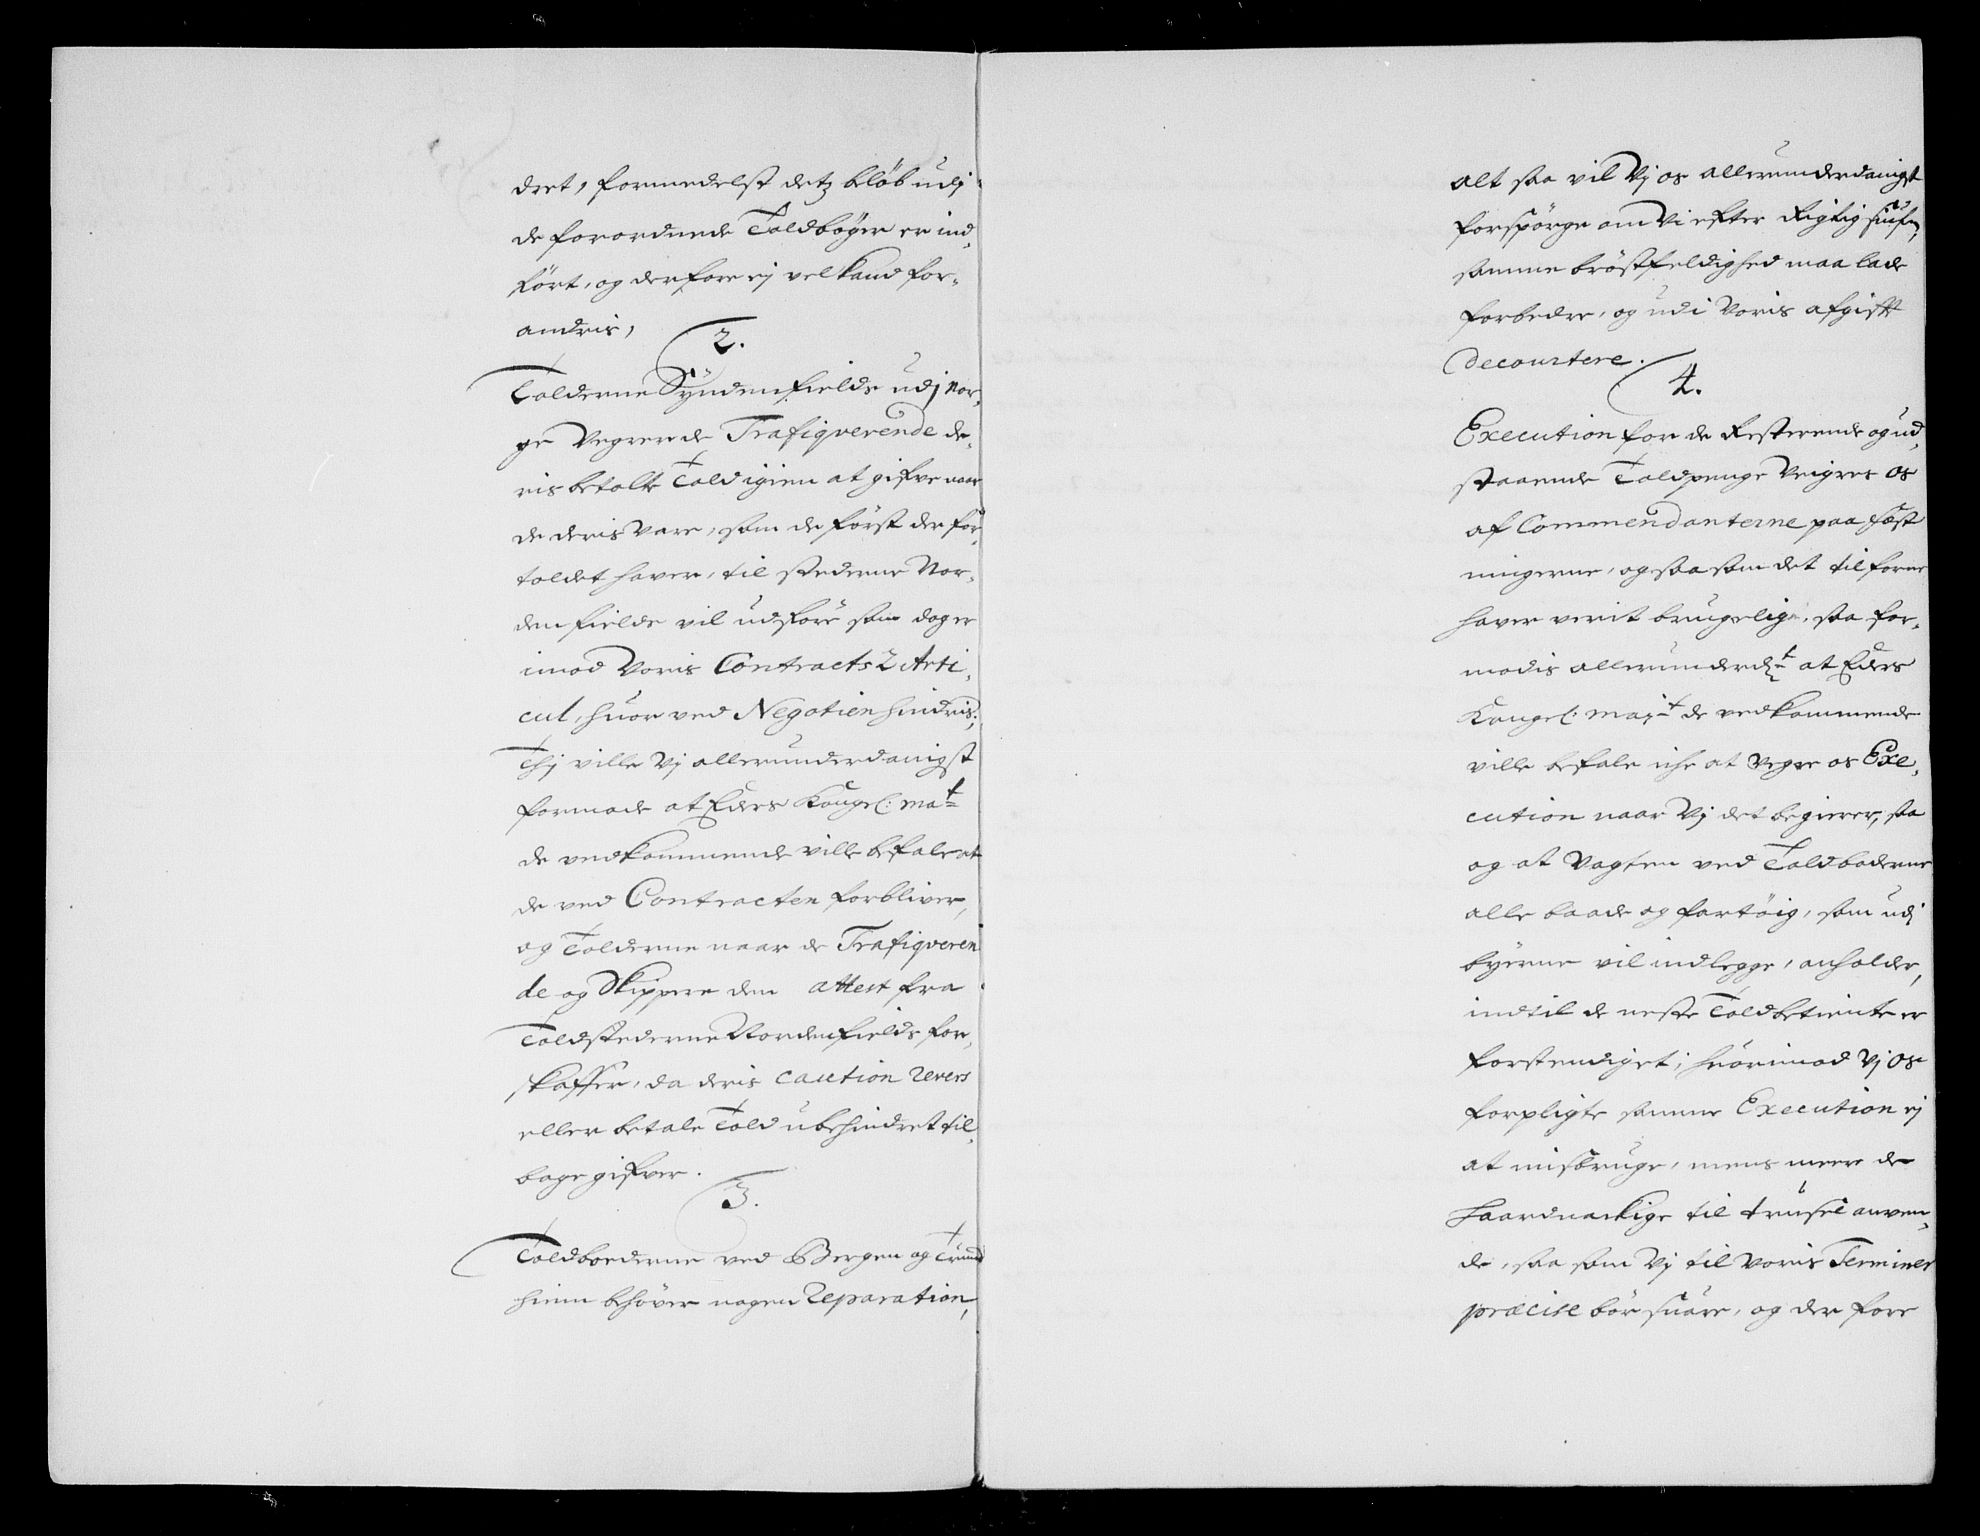 dret, formedelst detz beløb udj
de forordnede Toldbøger er ind-
ført, og derfore ej vel kand for-
andris,
2.
Tolderne Syndenfields udj Nor-
ge vegrer de Trafiqverende de-
ris betalte Told igien at gifve naar
de deris vare, som de først der for-
toldet haver, til stederne Nor-
denfields vil udføre som dog er
imod voris Contracts 2 Arti-
cul, huor ved Negotien hindris;
Thj ville Vj allerunderdanigst
formode at Eders Kongel: Ma^t
de vedkommende ville befale at
de ved Contracten forbliver,
og Tolderne naar de Trafiqveren
de og Skippere den attest fra
Toldstederne Nordenfields for-
skaffer, da deris caution revers
eller betalte Told ubehindret til-
bage gifver.
3.
Toldboderne ved Bergen og Trund
hiem behøver nogen Reparation,
alt saa vil Vj os allerunderdanigst
forspørge om Vi efter Rigtig
samme brøstfeldighed maa lade
forbedre, og udi Voris afgift
decourtere.
4.
Execution for de Resterende og ud-
staaende Toldpenge veigres os
af Commendanterne paa fæst
ningerne, og saa som det tilforne
haver verit brugelig, saa for-
modis allerunderd^t at Eders
Kongel: May^t de vedkommende
ville befale iche at vegre os Exe-
cution naar Vj det begierer, saa
og at Vagten ved Toldboderne
alle baade og fartøig, som udj
byerne vil indlegge, anholder,
indtil de neste Toldbetiente er
forstendiget; huorimod Vj os
forpligte samme Execution ej
at misbruge, mens meere de
haardnackige til trusel anven-
de, saa som Vj til voris Terminer
præcise bør suare, og der fore